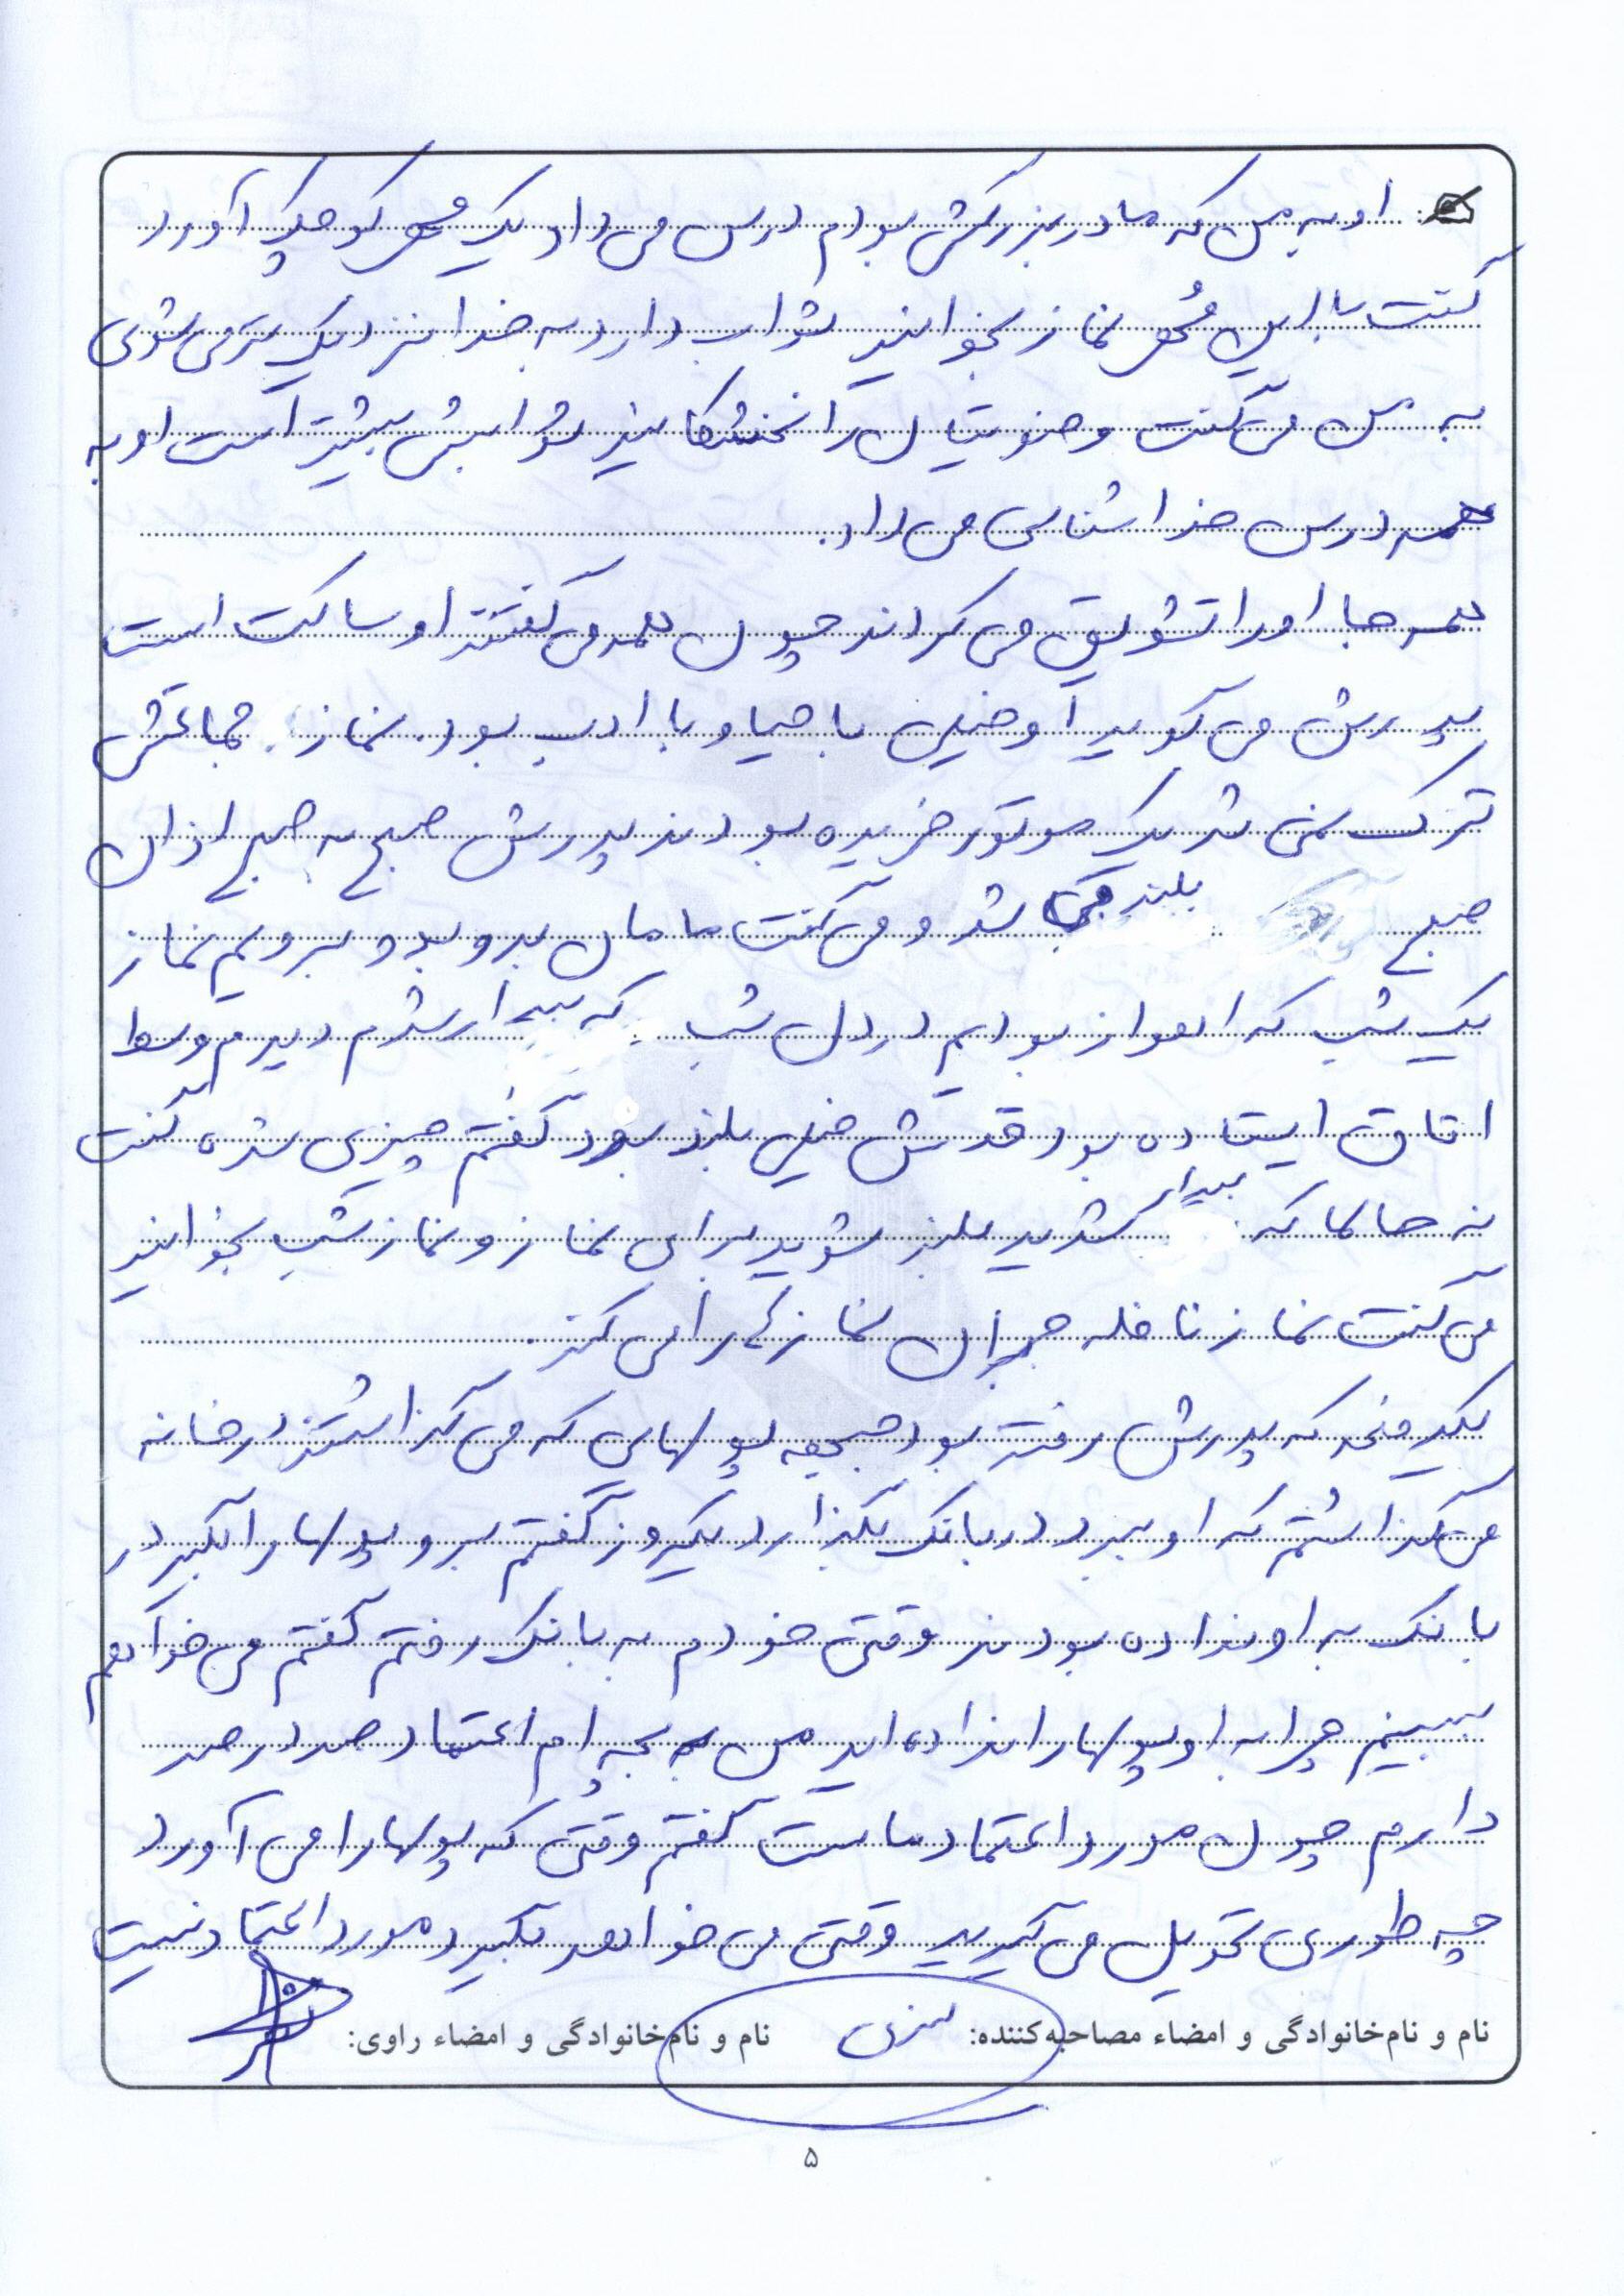 او به من که مادربزرگش بودم درس می داد یک مهر کوچک آورد
گفت با این مُهر نماز بخوانید ثواب دارد به خدا نزدیک تر می شوی
به من می گفت وضویتان را نخشکانید ثوابش بیشتر است او به
همه درس خداشناسی می داد.
همه جا او را تشویق می کردند چون همه می گفتند او ساکت است
پدرش می گوید او خیلی با حیا و با ادب بود. نماز جماعتش
ترک نمی شد یک موتور خریده بودند پدرش صبح به صبح اذان
صبح بلند می شد و می گفت مامان بدو بدو برویم نماز
یک شب که اهواز بودیم در دل شب که بیدار شدم دیدم وسط
اتاق ایستاده بود قدش خیلی بلند بود گفتم چیزی شده گفت
نه حالا که بیدار شدید بلند شوید برای نماز و نماز شب بخوانید
می گفت نماز نافله جبران نمازها را می کند.
یکدفعه که پدرش رفته بود جبهه پولهایی که می گذاشتند در خانه
می گذاشتم که او ببرد در بانک بگذارد یکروز گفتم برو پولها را بگیر در
بانک به او نداده بودند وقتی خودم به بانک رفتم گفتم می خواهم
ببینم چرا به او پولها را نداده اید من به بچه ام اعتماد صد در صد
دارم چون مورد اعتماد ماست گفتم وقتی که پولها را می آورد
چه طوری تحویل می گیرید وقتی می خواهد بگیرد مورد اعتماد نیست
نام و نام‌خانوادگی و امضاء مصاحبه‌کننده: نام و نام‌خانوادگی و امضاء راوی:
۵